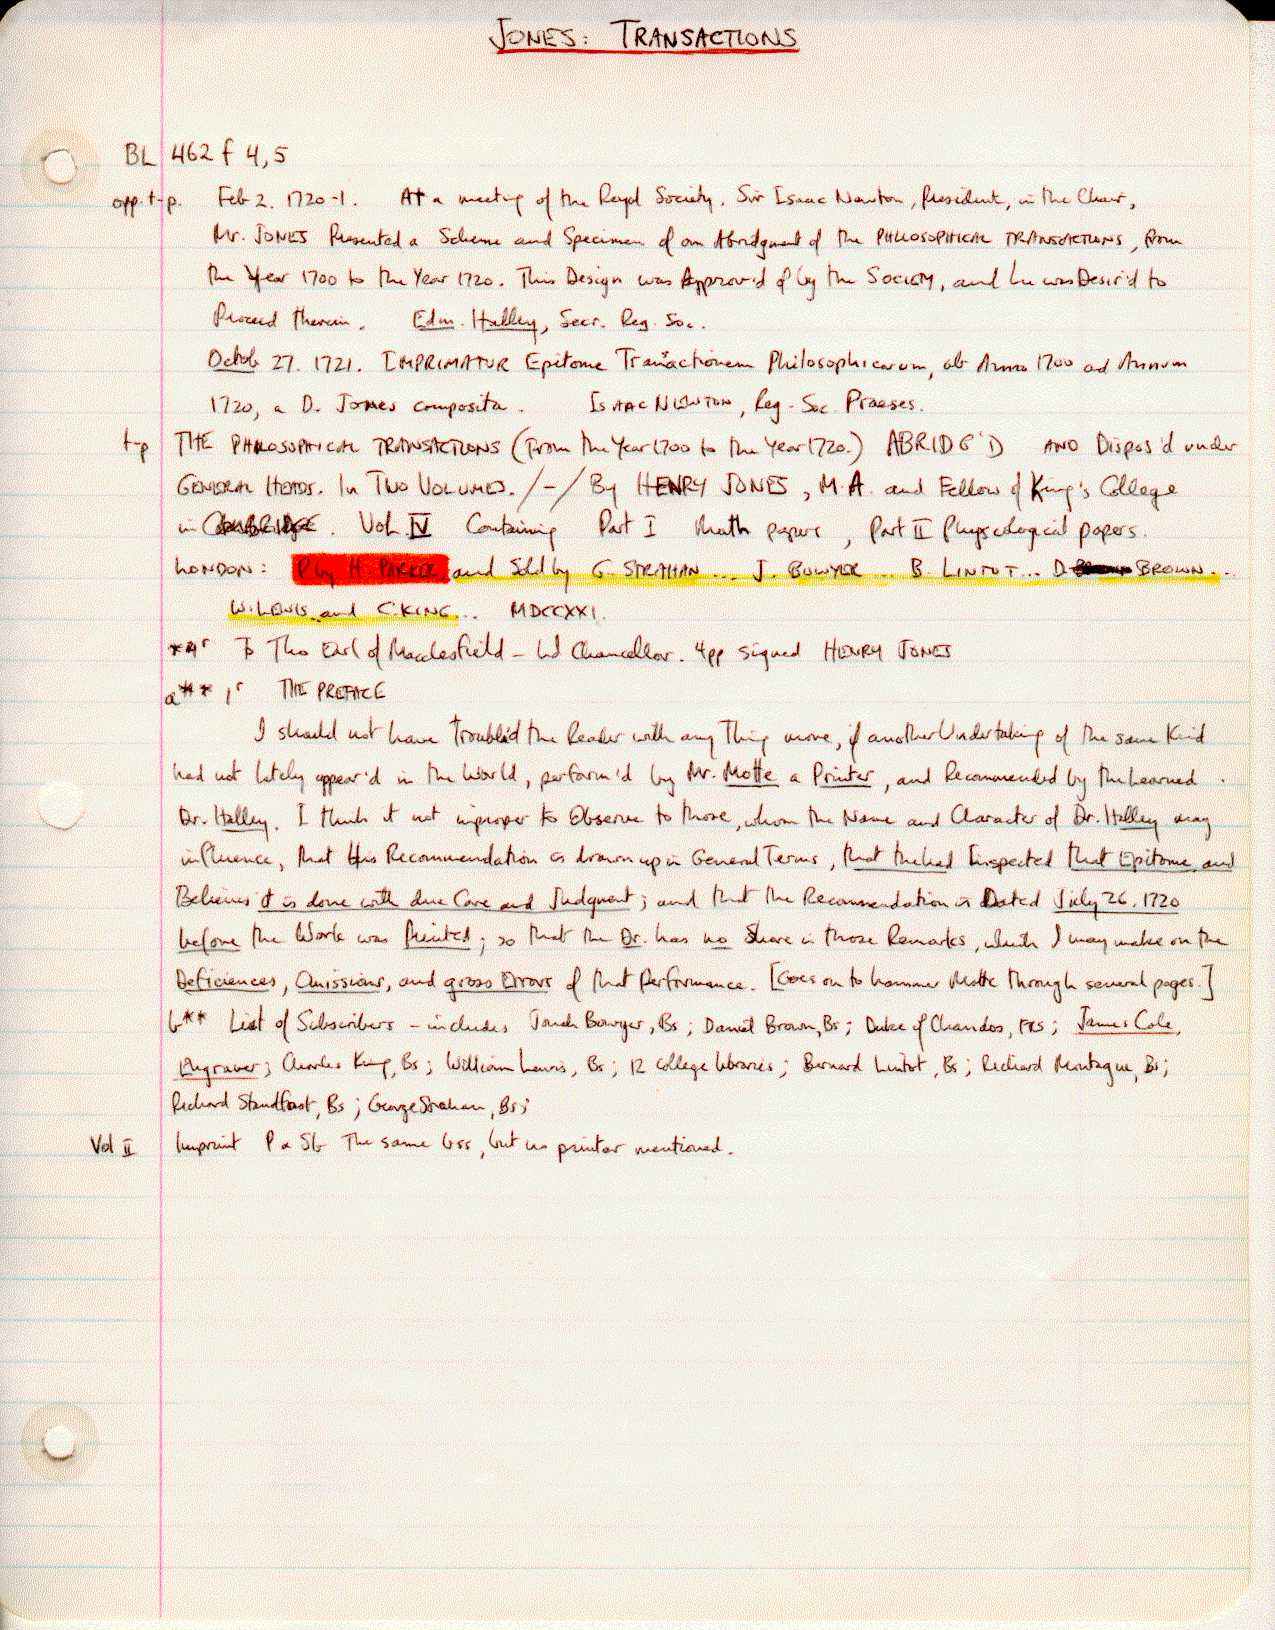 JONES: TRANSACTIONS
BL 462 f 4,5
opp. t-p. Feb 2. 1720-1. At a meeting of the Royal Society. Sir Isaac Newton, President, in the Chair,
Mr. JONES Presented a Scheme and Specimen of an Abridgment of the PHILOSOPHICAL TRANSACTIONS, from
the Year 1700 to the Year 1720. This Design was Approv'd of by the SOCIETY, and he was Desir'd to
Proceed therein. Edm. Halley, Secr. Reg. Soc.
Octob 27. 1721. IMPRIMATUR Epitome Transactionem Philosophicarum, ab Anno 1700 ad Annum
1720, a D. Jones composita. ISAAC NEWTON, Reg. Soc. Praeses.
t-p THE PHILOSOPHICAL TRANSACTIONS (From the Year 1700 to the Year 1720.) ABRIDG'D AND Dispos'd under
GENERAL HEADS. In TWO VOLUMES. /-/ By HENRY JONES, M.A. and Fellow of King's College
in CAMBRIDGE. Vol. IV Containing Part I Math papers, Part II Physeological papers.
LONDON: P by H. PARKER and Sold by G. STRAHAN ... J. BOWYER ... B. LINTOT ... D. BROWN ...
W. LEWIS and C. KING ... MDCCXXI.
*4r To Tho Earl of Macclesfield - Ld Chancellor. 4pp signed HENRY JONES
a** 1r THE PREFACE
I should not have Troubled the Reader with any Thing more, if another Undertaking of the same Kind
had not lately appear'd in the World, perform'd by Mr. Motte a Printer, and Recommended by the Learned
Dr. Halley. I think it not improper to Observe to those, whom the Name and Character of Dr. Halley may
influence, that His Recommendation is drawn up in General Terms, that he had Inspected that Epitome, and
Believes it is done with due Care and Judgment; and that the Recommendation is Dated July 26. 1720
before the Work was Printed; so that the Dr. has no Share in those Remarks, which I may make on the
Deficiences, Omissions, and gross Errors of that Performance. [Goes on to hammer Motte through several pages.]
b** List of Subscribers - includes Jonah Bowyer, Bs; Daniel Brown, Bs; Duke of Chandos, FRS; James Cole,
Engraver; Charles King, Bs; William Lewis, Bs; 12 college libraries; Bernard Lintot, Bs; Richard Montague, Bs;
Richard Standfast, Bs; George Strahan, Bs;
Vol II Imprint P & Sb The same bss, but no printer mentioned.